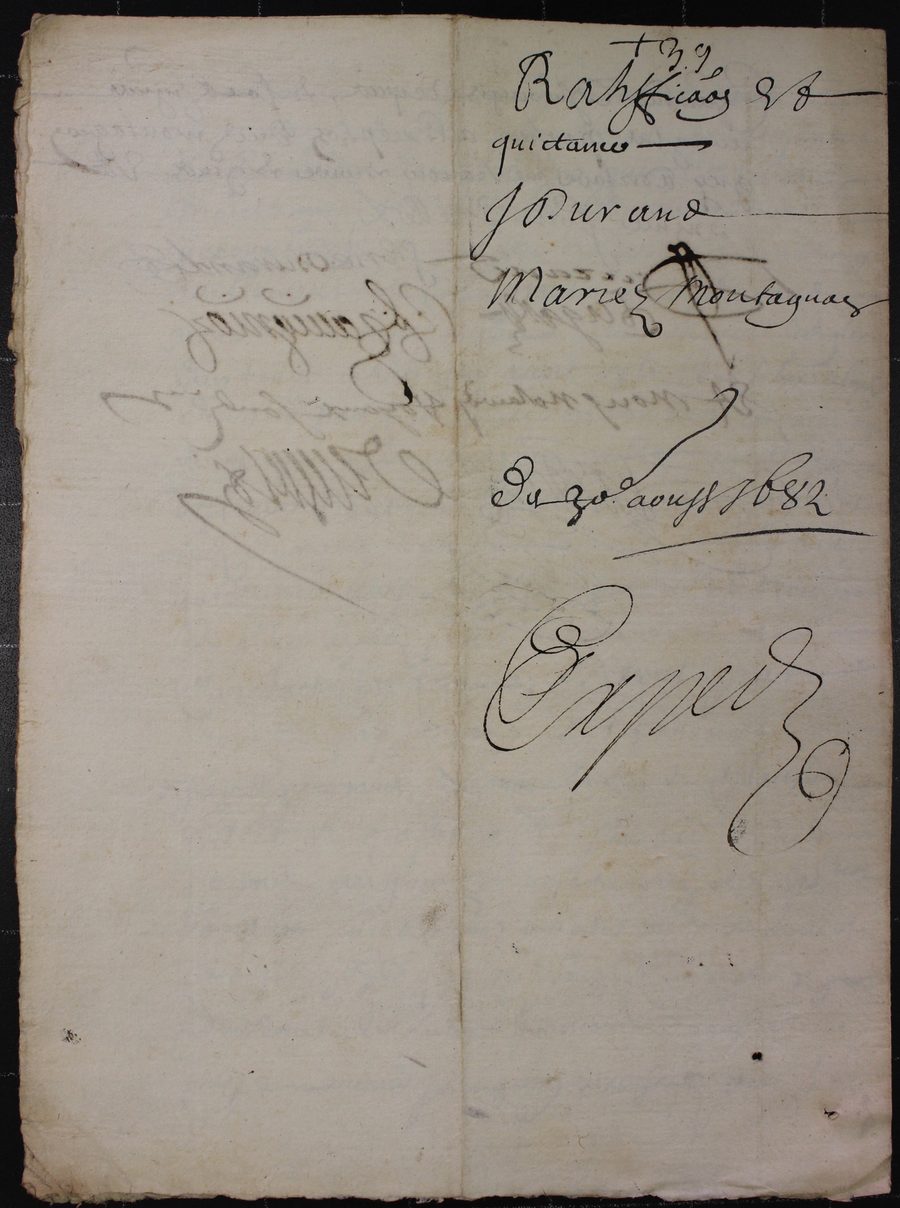 + 39
Ratifficaon Et
quictance
J Durand
Marie Montagnac
Du 30e aoust 1682
Exped